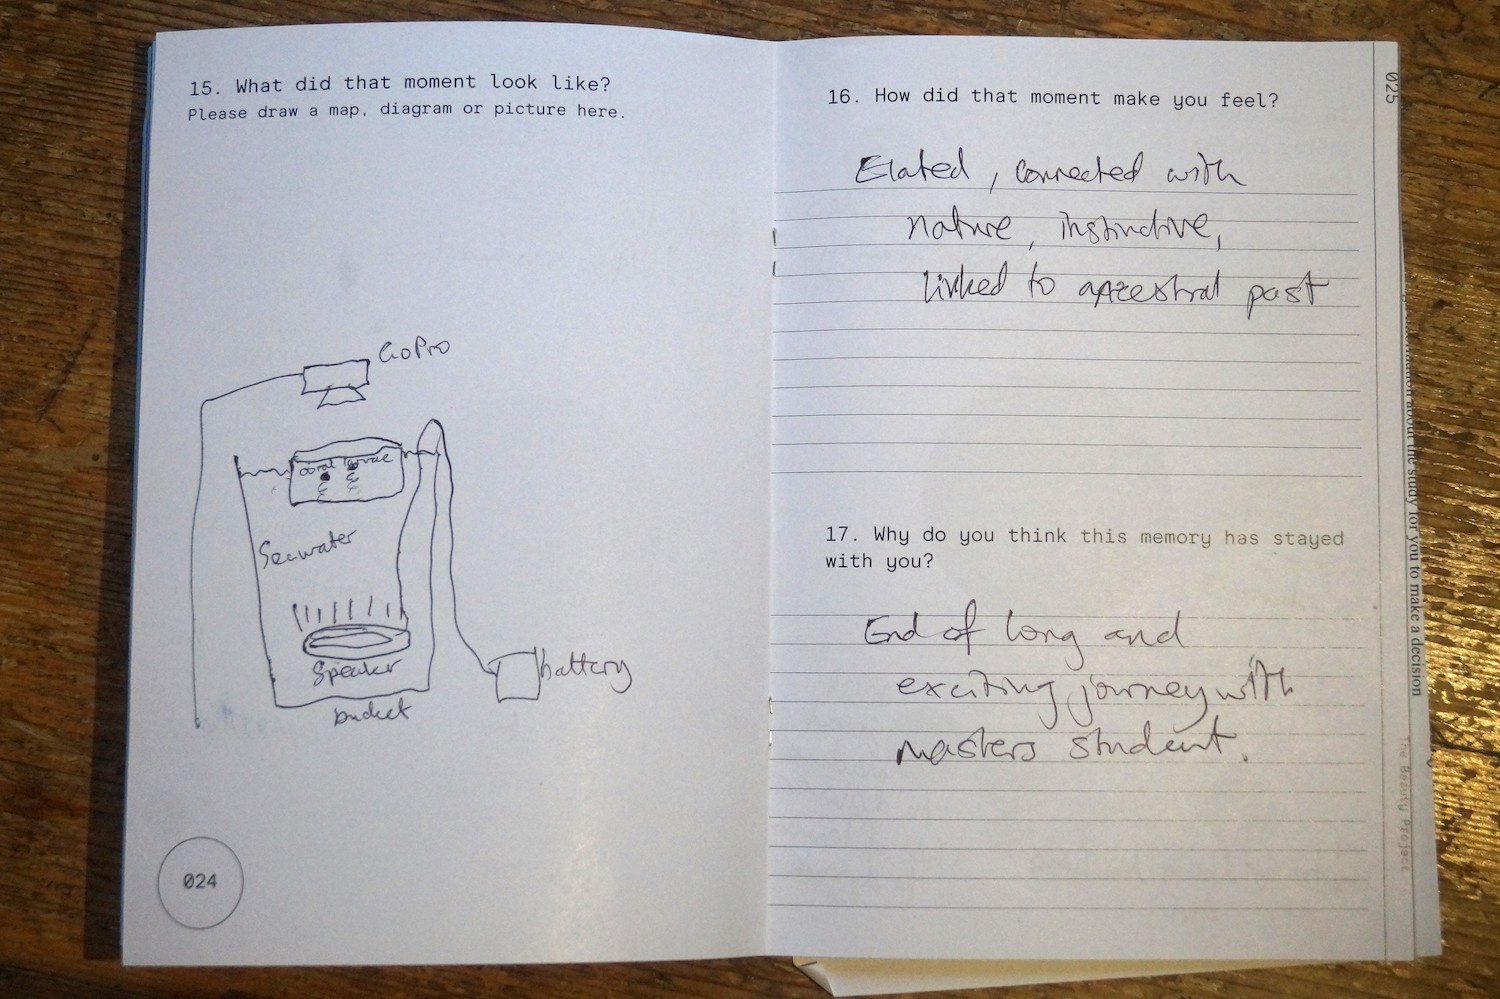 15. What did that moment look like?
Please draw a map, diagram or picture here.
GoPro
coral larvae
Seawater
Speaker
bucket
battery
024
16. How did that moment make you feel?
Elated, connected with
nature, instinctive,
linked to ancestral past
17. Why do you think this memory has stayed
with you?
End of long and
exciting journey with
masters student.
025
about the study for you to make a decision
The Beauty Project